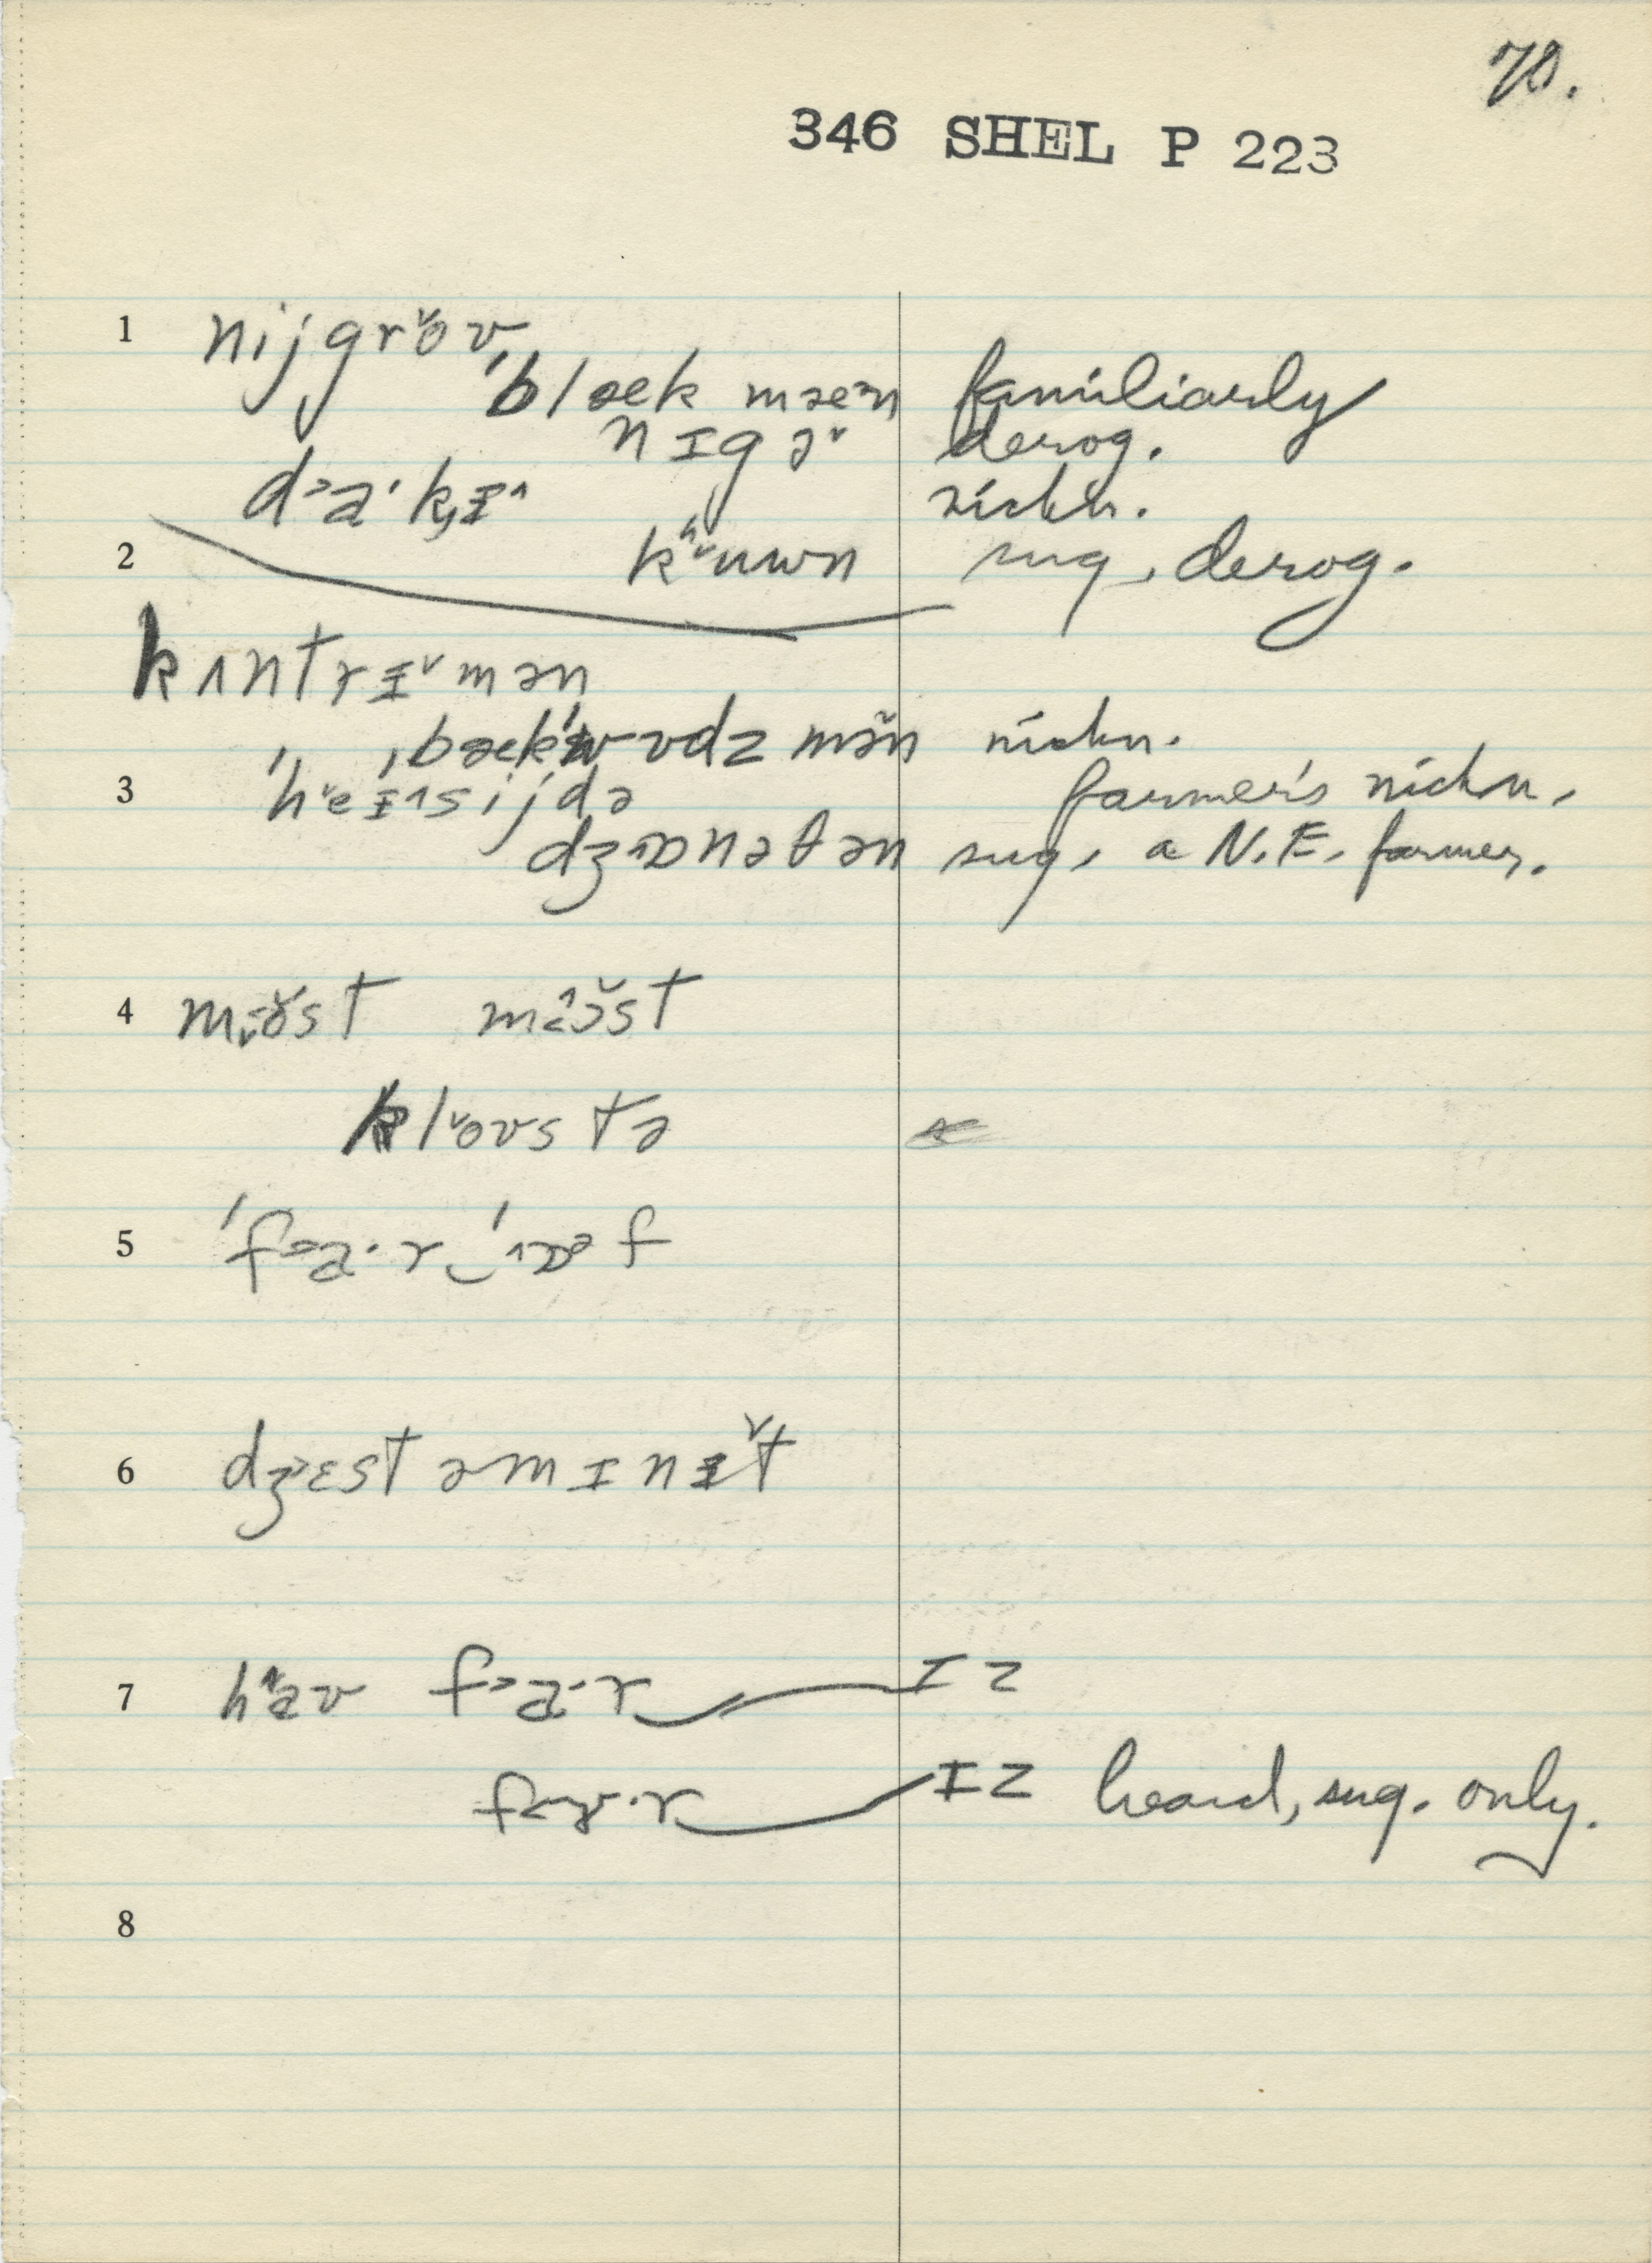 70.
346 SHEL P 223
1 nijgrˇoʊ
ˈblæk mæ˃n familiarly
nɪgəˇ derog.
d˃a·kɪ^ nickn.
2 kʰˇuwn sug, derog.
kʌntrɪˇmən
ˌbækˈwʊdz mən nickn.
3 ˈhˇeɪ^sijdə farmer's nickn,
dʒ^ɒnəθən sug, a N.E. farmer.
4
klˇoʊstə
5 ˈf˃a·r‿ˈ^ɒ˃f
6 dʒ˃ɛst əmɪnɪˇt
7 h^aʊ f˃a·r‿ɪz
ɪz heard, sug. only.
8